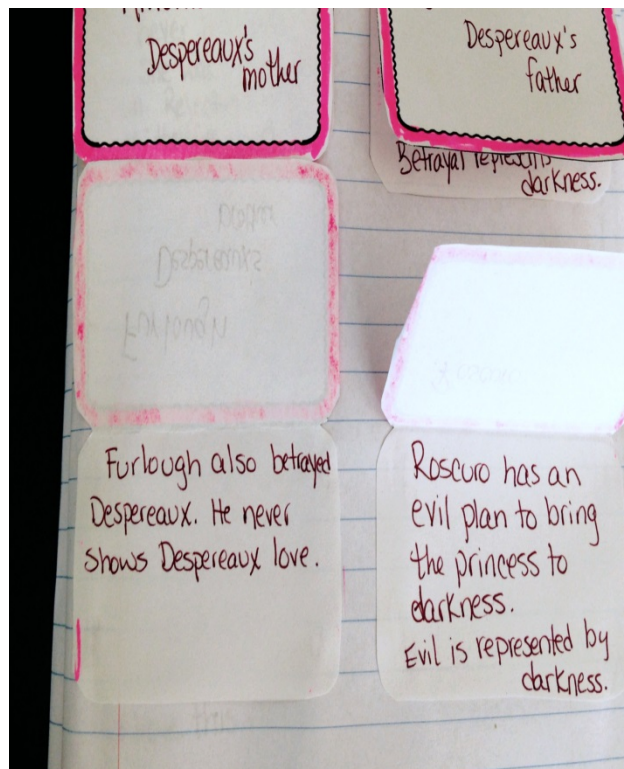 Despereaux's
mother
Despereaux's
father
Betrayal represents
darkness.
Furlough also betrayed
Despereaux. He never
shows Despereaux love.
Roscuro has an
evil plan to bring
the princess to
darkness.
Evil is represented by
darkness.